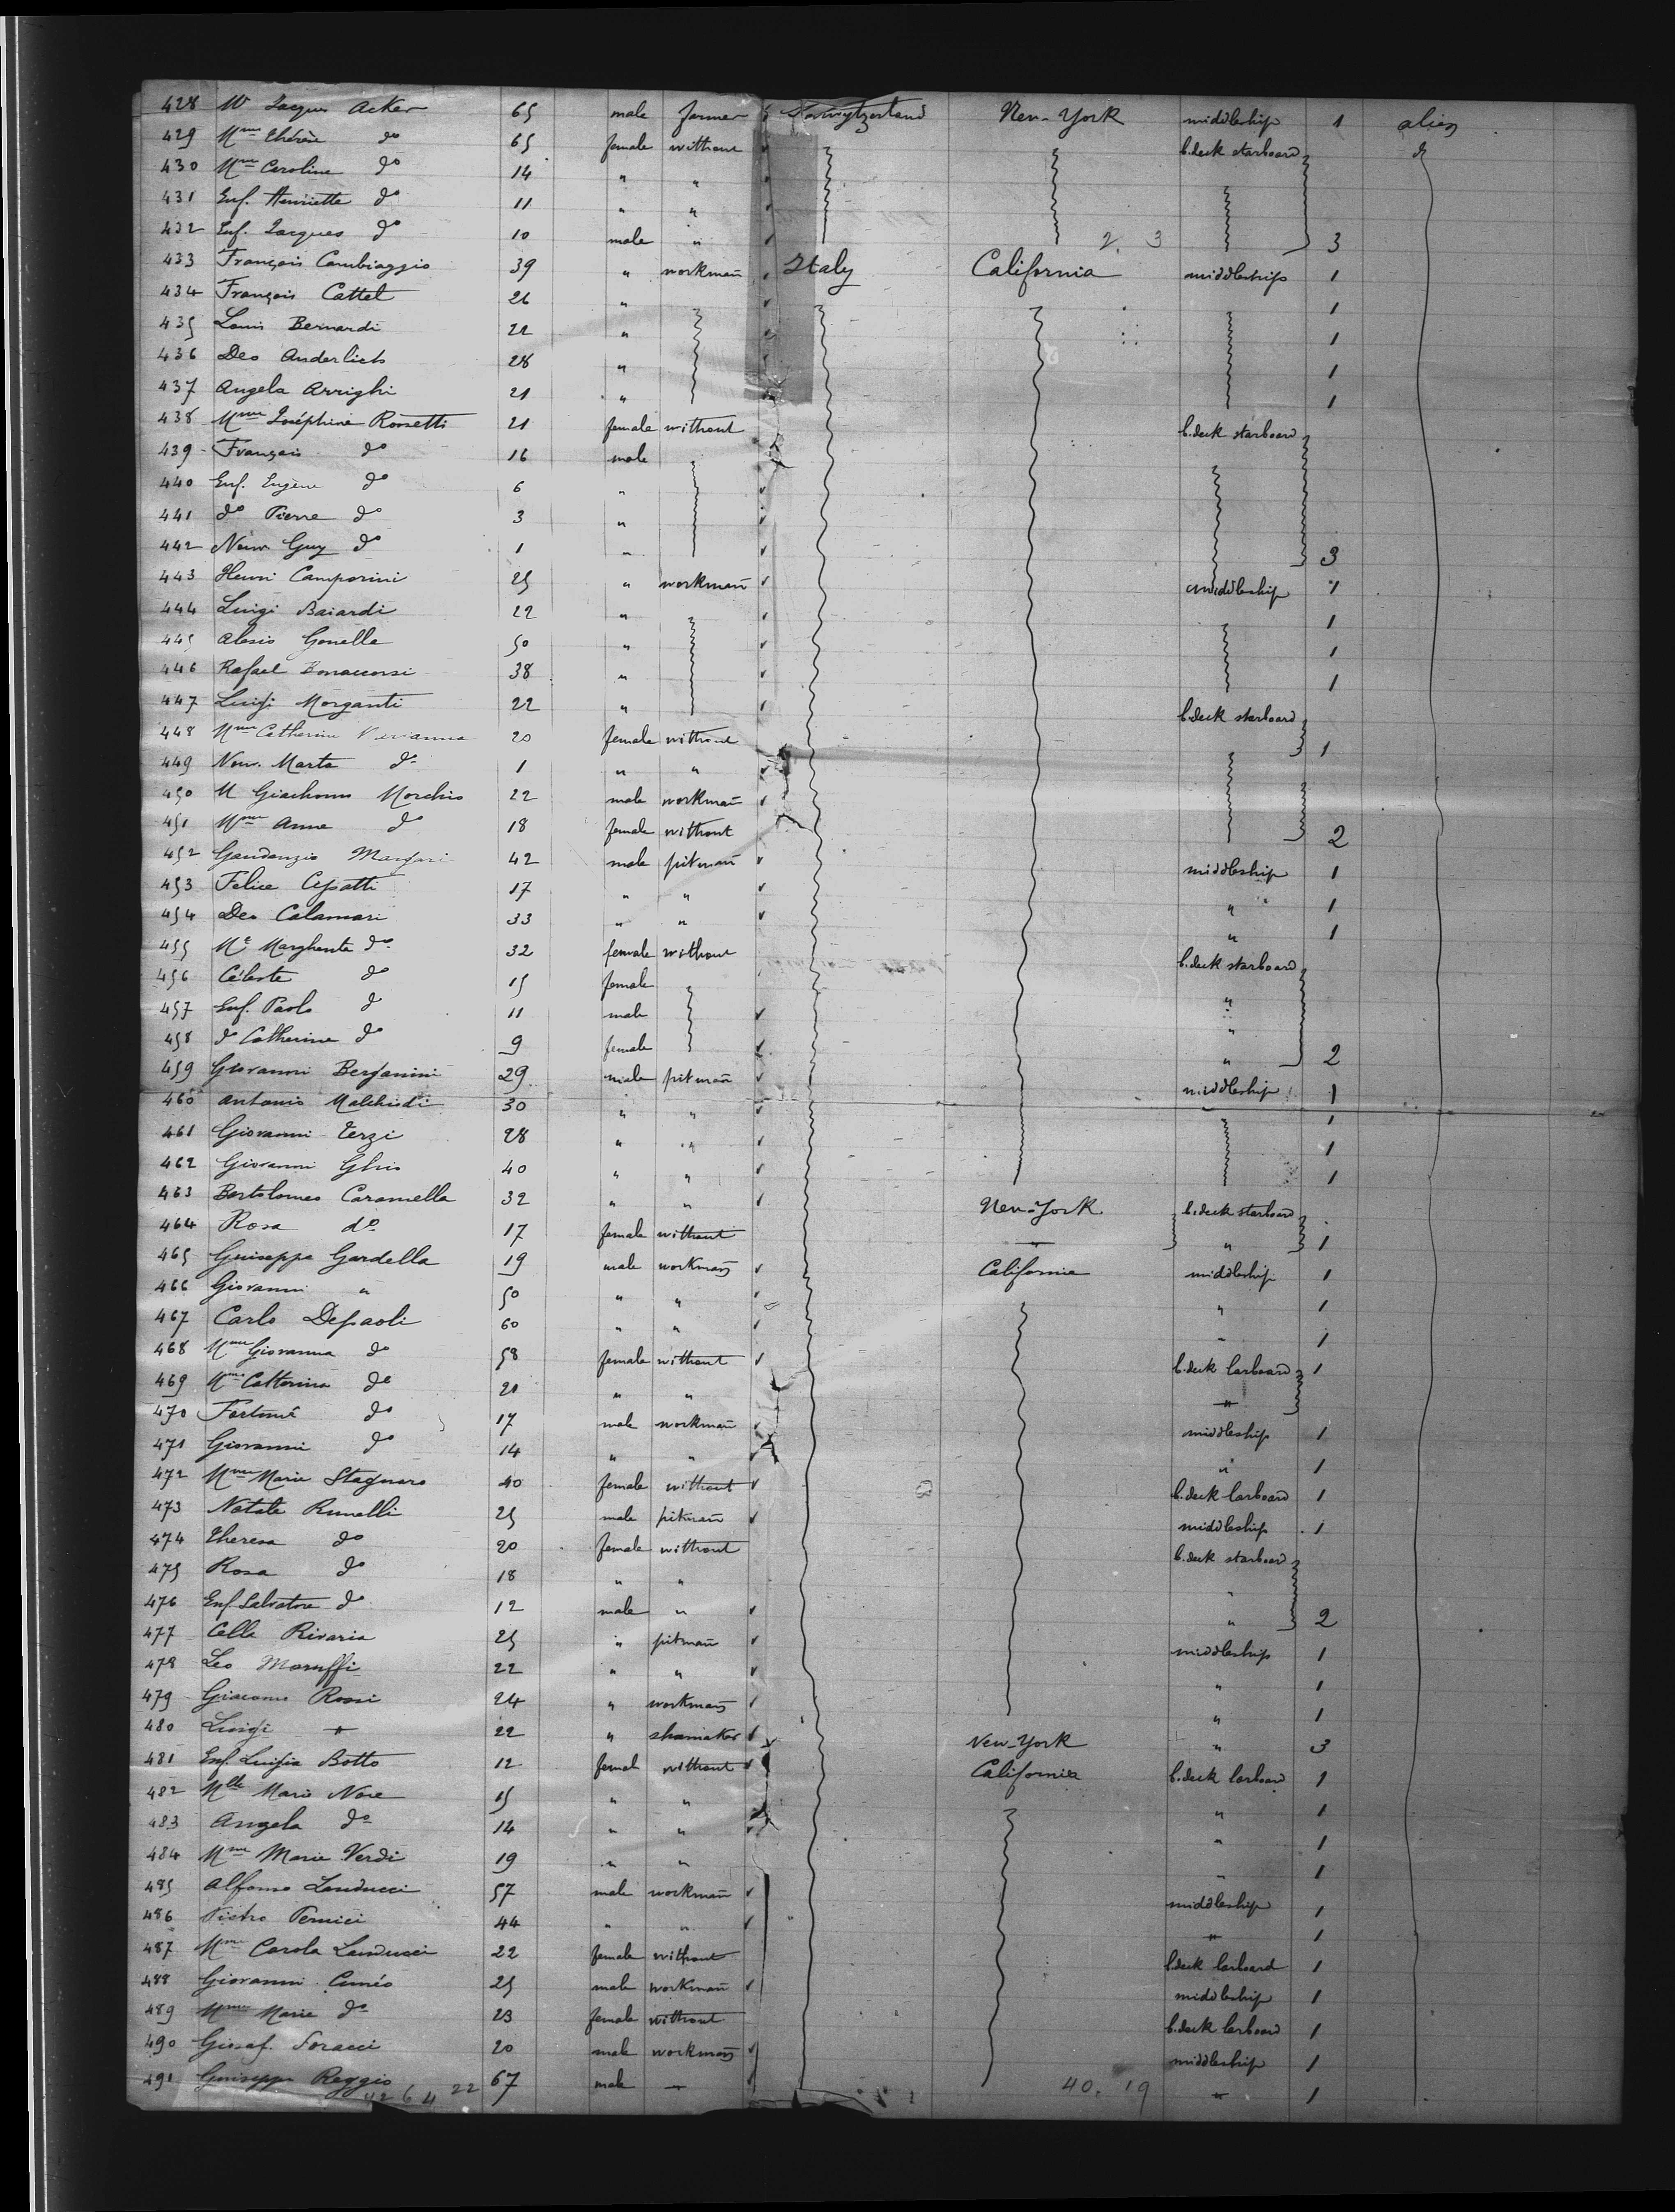 428 Mr Jacques Acker 65 male farmer Switzerland New-York middleship 1 alien
429 Mme Thérèse do 65 female without b.deck starboard do
430 Mme Caroline do 14 " "
431 Enf. Henriette do 11 " "
432 Enf. Jacques do 10 male " 2. 3 3
433 François Cambiaggio 39 " workman Italy California middleships 1
434 François Cattel 26 " 1
435 Louis Bernardi 22 " 1
436 Deo Anderlich 28 " 1
437 Angela Arrighi 21 " 1
438 Mme Joséphine Rossetti 21 female without b.deck starboard
439 François do 16 male
440 Enf. Eugène do 6 "
441 do Pierre do 3 "
442 Nour. Guy do 1 " 3
443 Henri Camporini 25 " workman middleship 1
444 Luigi Baiardi 22 " 1
445 Alesio Gonella 50 " 1
446 Rafael Bonaccorsi 38 " 1
447 Luigi Morganti 22 " b.deck starboard
448 Mme Catherine 20 female without 1
449 Nour. Marta do 1 " "
450 M Giachomo Morchio 22 male workman
451 Mme Anne do 18 female without 2
452 Gaudenzio 42 male pitman middleship 1
453 Felice Cepatti 17 " " " 1
454 Deo Calamari 33 " " " 1
455 Me Margherita do 32 female without b.deck starboard
456 Céleste do 15 female
457 Enf. Paolo do 11 male "
458 do Catherine do 9 female " 2
459 Giovanni Bergamini 29 male pitman middleship 1
460 Antonio Malchiodi 30 " " 1
461 Giovanni Terzi 28 " " 1
462 Giovanni Ghio 40 " " 1
463 Bortolomeo Caramella 32 " " New-York b.deck starboard
464 Rosa do 17 female without " " 1
465 Guiseppe Gardella 19 male workman California middleship 1
466 Giovanni " 50 " " " 1
467 Carlo Depaoli 60 " " " 1
468 Mme Giovanna do 58 female without b.deck larboard 1
469 Mme Catterina do 21 " " "
470 Fortuné do 17 male workman middleship 1
471 Giovanni do 14 " " " 1
472 Mme Marie Stagnaro 40 female without b.deck larboard 1
473 Natale Runelli 25 male pitman middleship 1
474 Theresa do 20 female without b.deck starboard
475 Rosa do 18 " " "
476 Enf. Salvatore do 12 male " " 2
477 Celle Rivaria 25 " pitman middleship 1
478 Leo Maruffi 22 " " " 1
479 Giacomo Rossi 24 " workman " 1
480 Luigi " 22 " shomaker New-York " 3
481 Enf. Luigia Botto 12 femal without California b.deck larboard 1
482 Mlle Marie Nove 15 " " " 1
483 Angela do 14 " " " 1
484 Mme Marie Verdi 19 " " " 1
485 Alfonso Landucci 57 male workman middleship 1
486 Pietro Pernici 44 " " " 1
487 Mme Carola Landucci 22 female without b.deck larboard 1
488 Giovanni Cunéo 25 male workman middleship 1
489 Mme Marie do 23 female without b.deck larboard 1
490 Giusef. Soracci 20 male workman middleship 1
491 Guiseppe Reggio 67 male " " 1
42 6 4 22 40. 19